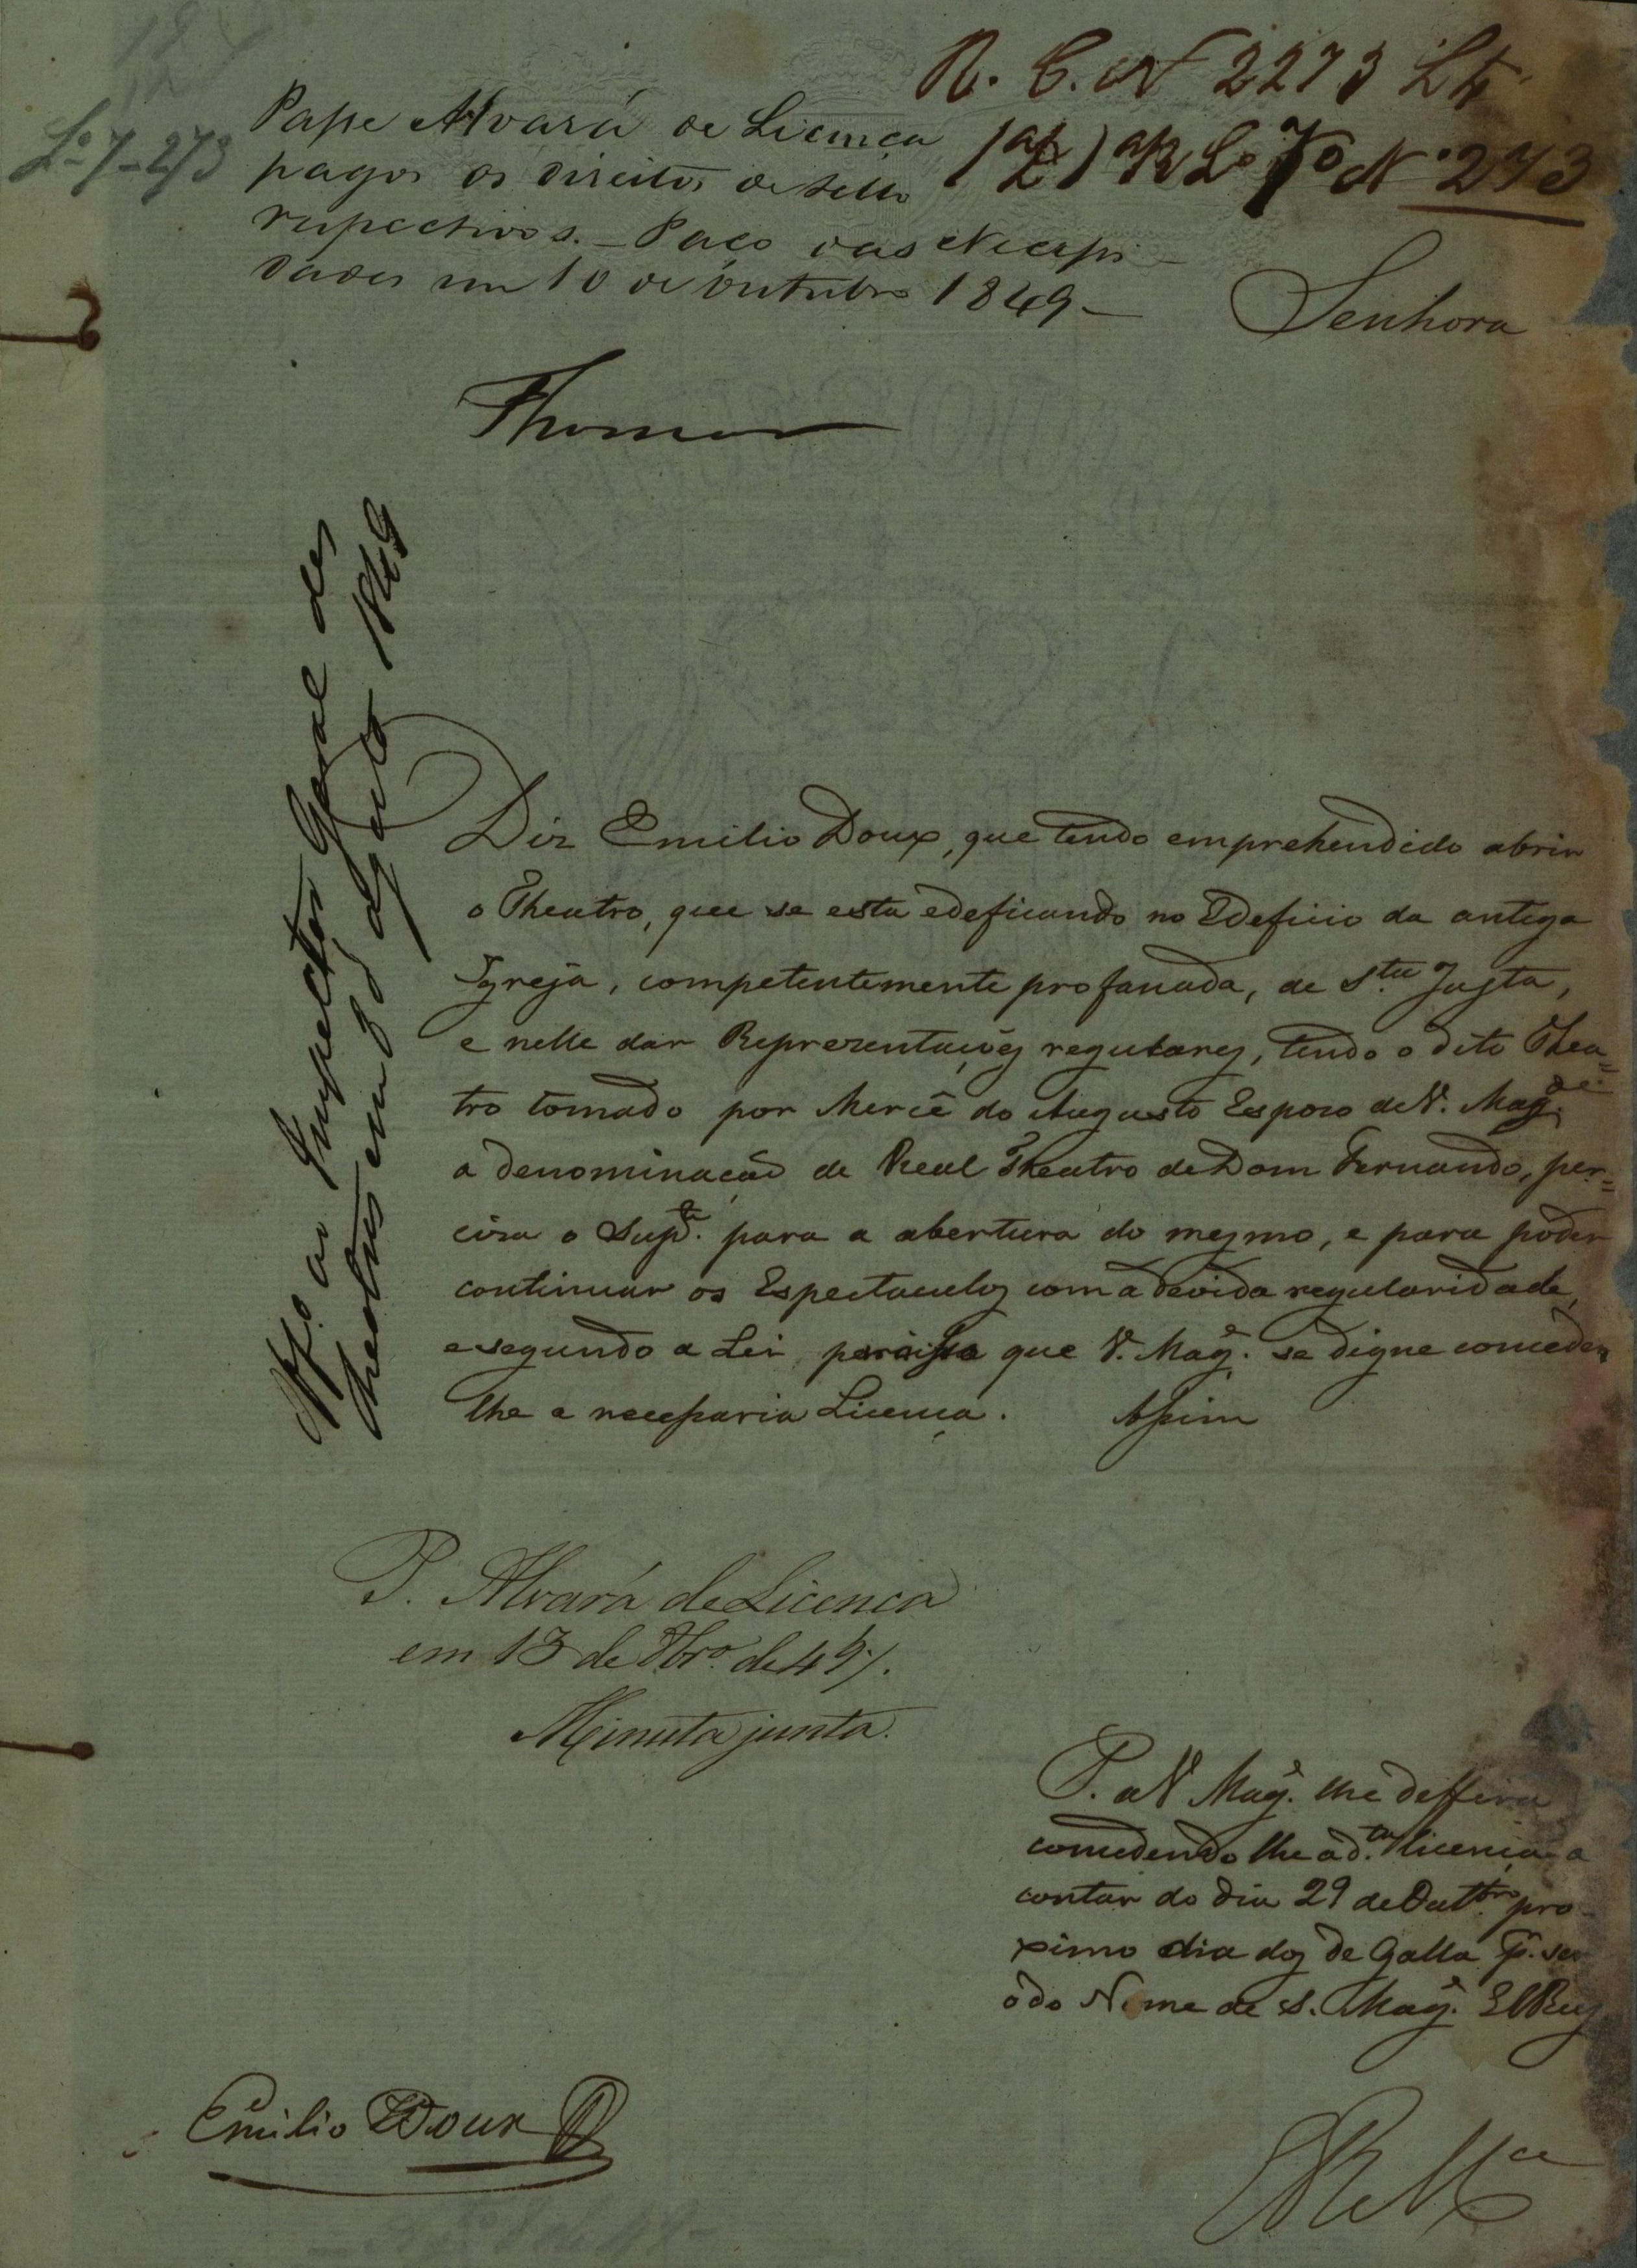 R. C. N 2273 L 4
(a Z) L.º 7º N.º 273
L.º 7-273
Passe Alvará de Licença
pagos os direitos de sello
respectivos. – Paço das Necessi-
dades em 10 de Outubro 1849 –
Thomar
Senhora
Off.º ao Inspector Geral dos
Theatros em d'Agosto 1849
Diz Emilio Doux, que tendo emprehendido abrir
o Theatro, que se esta edeficando no Edeficio da antiga
Igreja, competentemente profanada, de S.ta Justa,
e nelle dar Reprezentações regulares, tendo o dito Thea=
tro tomado por Mercê do Augusto Espozo de V. Mag.de
a denominação de Real Theatro de Dom Fernando, per=
ciza o Sup.te para a abertura do mesmo, e para poder
continuar os Espectaculos com a devida regularidade,
e segundo a Lei, que V. Mag.e se digne conceder
lhe a necessaria Licença. Assim
P. Alvará de Licença
em 13 de 8bro. de 49.
Minuta junta.
P. a V Mag.e lhe deffira
concedendo lhe a d.ta licença a
contar do dia 29 de Outbro. pro-
ximo dia dos de Galla p. ser
o do Nome de S. Mag.e ElRey
E R M.ce
Emilio Doux